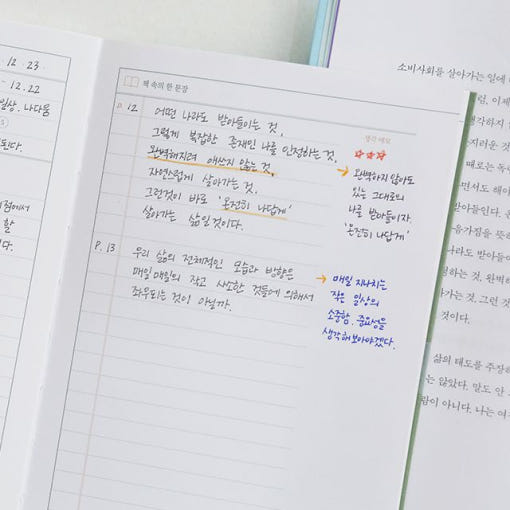 12.23
- 12.22
일상. 나다움
된다.
점에서
할
다.
책 속의 한 문장
생각 메모
p. 12
어떤 나라도 받아들이는 것,
그렇게 복잡한 존재인 나를 인정하는 것,
완벽해지려 애쓰지 않는 것,
자연스럽게 살아가는 것,
그런것이 바로 '온전히 나답게'
살아가는 삶일 것이다.
☆☆☆
→ 완벽하지 않아도
있는 그대로의
나를 받아들이자.
'온전히 나답게'
P. 13
우리 삶의 전체적인 모습과 방향은
매일매일의 작고 사소한 것들에 의해서
좌우되는 것이 아닐까.
→ 매일 지나치는
작은 일상의
소중함. 중요성을
생각해보아야겠다.
소비사회를 살아가는 일에
이제
생각하지
지러운 것
때로는 독
면서도 해야
받아들인다.
음가짐을 뜻하
나라도 받아들이
정하는 것, 완벽하
가는 것, 그런 것
것이다.
삶의 태도를 주장하
는 않았다. 말도 안
람이 아니다. 나는 여